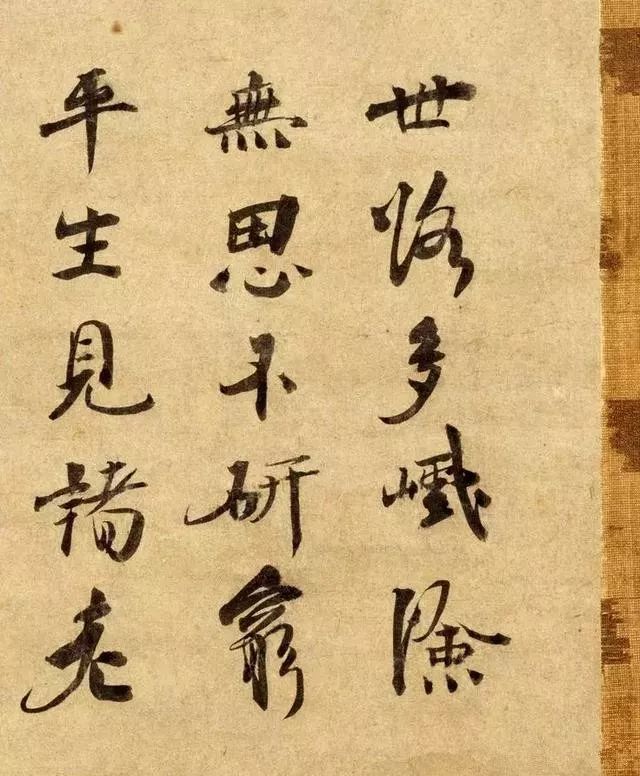 世路多巇險
無思不研窮
平生見諸老